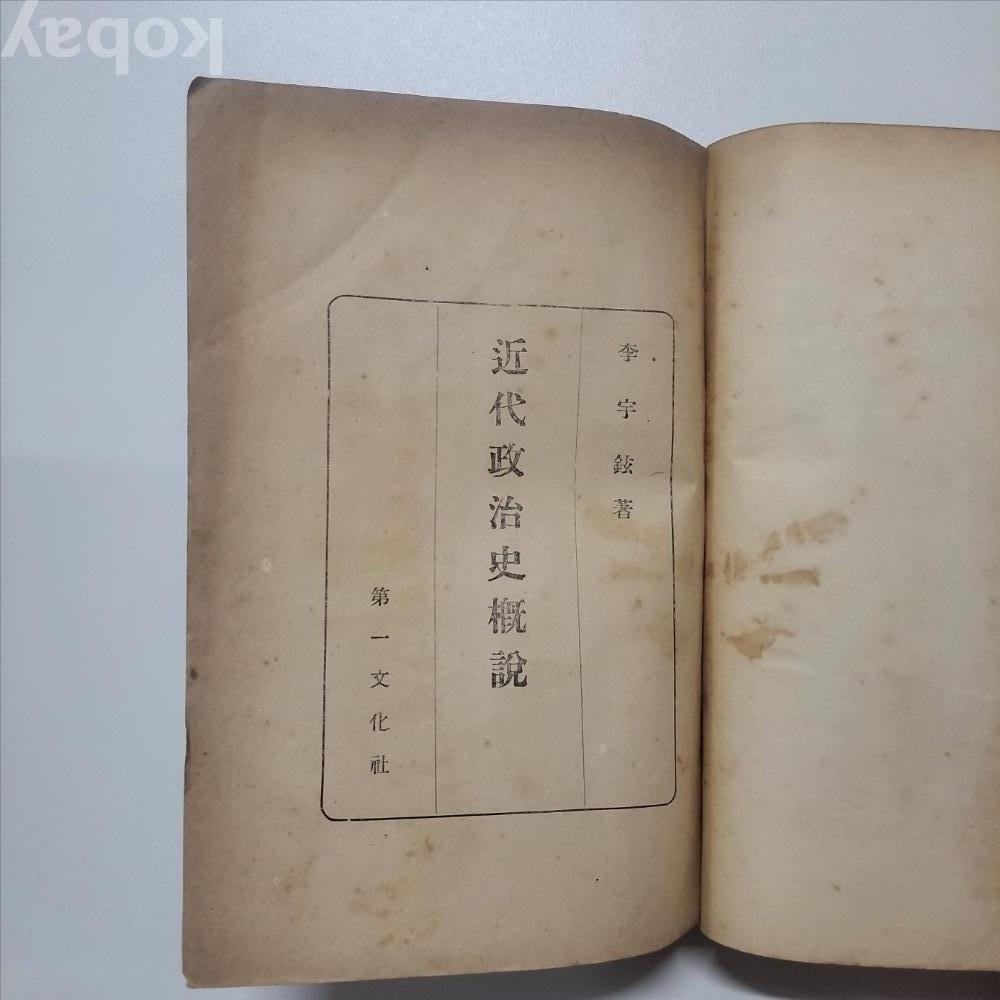 李宇鉉著
近代政治史槪說
第一文化社
kobay